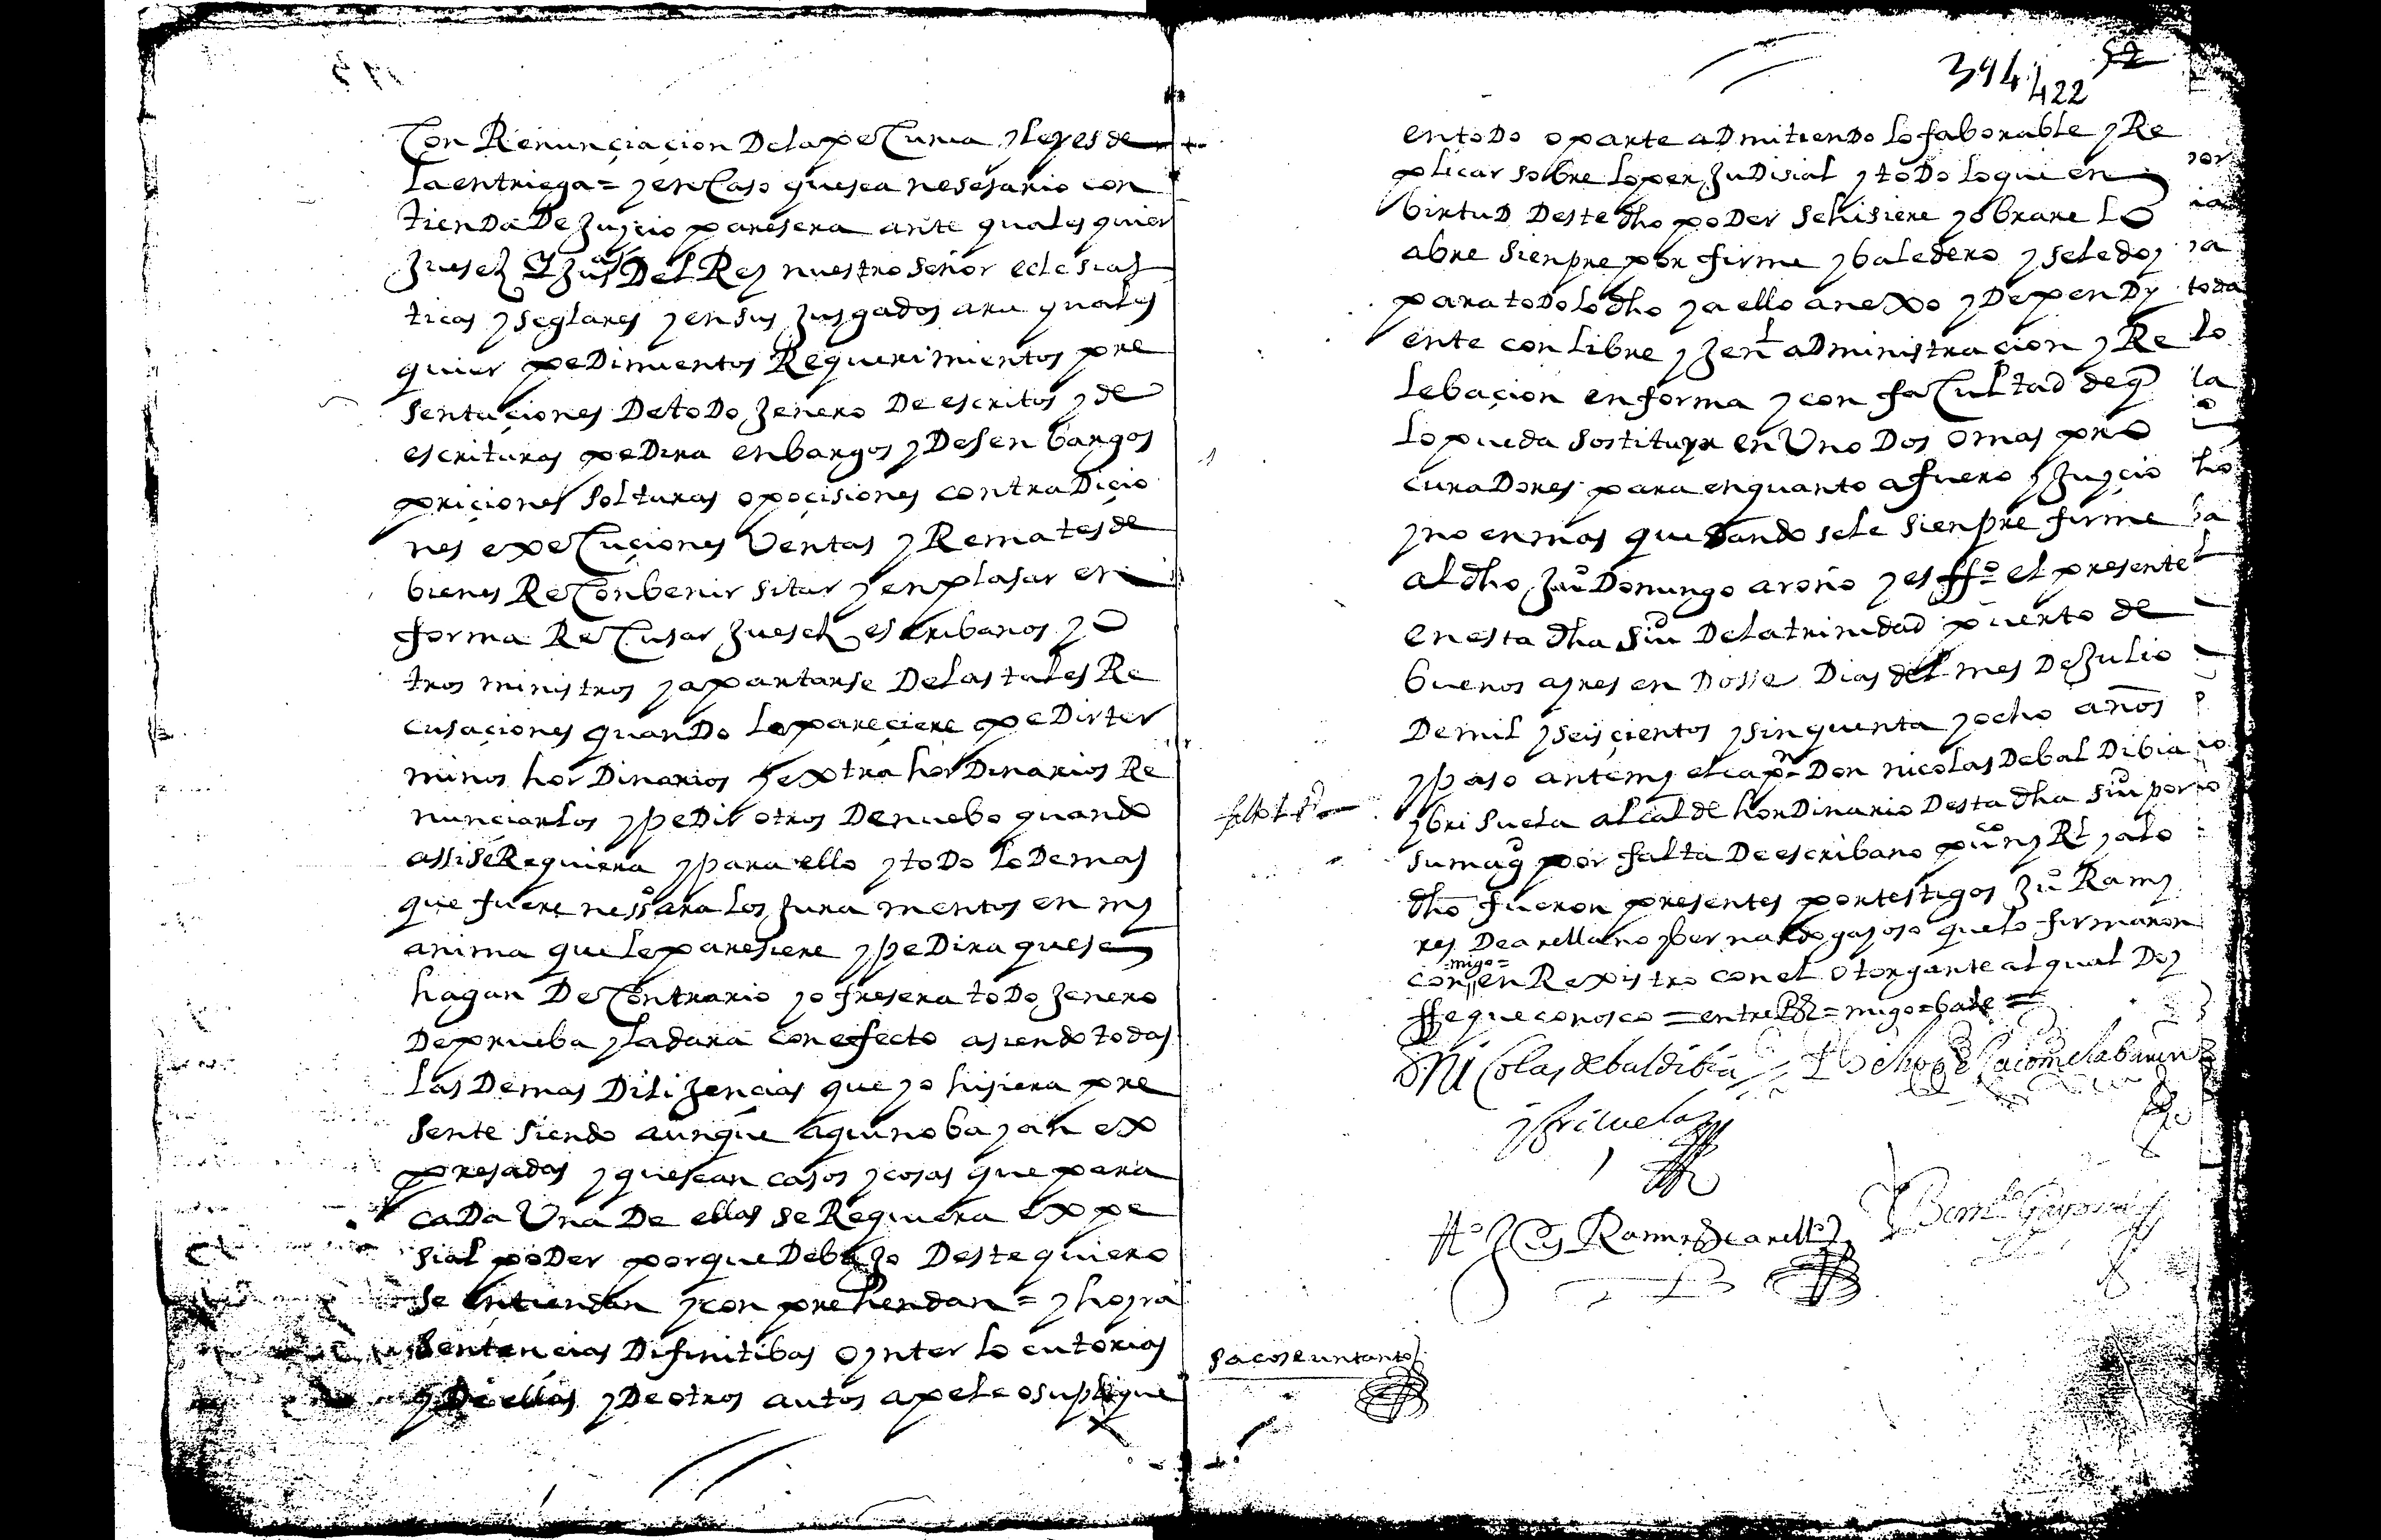 Con Renunçiaçion De la pecunia y leyes de
la entriega = y en caso que sea nesesario con
tienda De Juycio paresera ante quales quier
Juesez y Juss Del Rey nuestro señor eclesias
ticas y seglares y en sus Jusgados ara quales
quier peDimientos Requerimientos pre
sentaçiones De toDo Jenero De escritos y de
escrituras peDira enbargos y Desenbargos
priçiones solturas opoçisiones contraDiçio
nes execuçiones Ventas y Remates de
bienes Reconbenir sitar y enplasar en
forma Recusar Juesez escribanos y o
tros ministros y apartarse De las tales Re
cusaçiones quanDo le pareçiere peDir ter
minos horDinarios y extrahorDinarios Re
nunciarlos y peDir otros De nuebo quando
assi se Requiera y para ello y toDo lo Demas
que fuere nesso ara los Juramentos en my
anima que le paresiere y peDira que se
hagan De Contrario y ofresera toDo Jenero
De prueba y la dara con efecto asiendo todas
las Demas DiliJençias que yo hisiera pre
sente siendo aunque aqui no bayan ex
presadas y que sean casos y cosas que para
caDa Una De ellas se Requiera expe
sial poDer porque Debajo Deste quiero
se entiendan y conprehendan = y hoyra
Sentençias Difinitibas o ynterlocutorias
y De ellas y De otros autos apele o suplique
394 52
422
en toDo o parte aDmitiendo lo faborable y Re
plicar sobre lo perJuDisial y toDo lo que en
birtuD Deste dho poDer se hisiere y obrare lo
abre sienpre por firme y baledero y se le doy
para toDo lo dho y a ello anexo y DepenDy
ente con libre y Jenl aDministraçion y Re
lebaçion en forma y con facultad de q
lo pueda sostituyr en Uno Dos o mas pro
curaDores para en quanto a fuero y Juycio
y no en mas quedandosele sienpre firme
al dho Juo Domingo aroño y es ffo el presente
en esta dha siud De la trinidad puerto de
buenos ayres en Dosse Dias del mes De Julio
De mil y seisçientos y sinquenta y ocho años
y paso ante my el capn Don nicolas De balDibia
y brisuela alcalde horDinario Desta dha siud por
su magd por falta De escribano puco ny Rl y a lo
dho fueron presentes por testigos Juo Ramy
res De arellano y bernardo gayoso que lo firmaron
migo=
con en Rexistro con el otorgante al qual Doy
ffe que conosco = entre Rs = migo = bale =
Nicolas de baldibia
y briçuela
to Ramires de arello
Berndo Gayoso
sacose un tanto